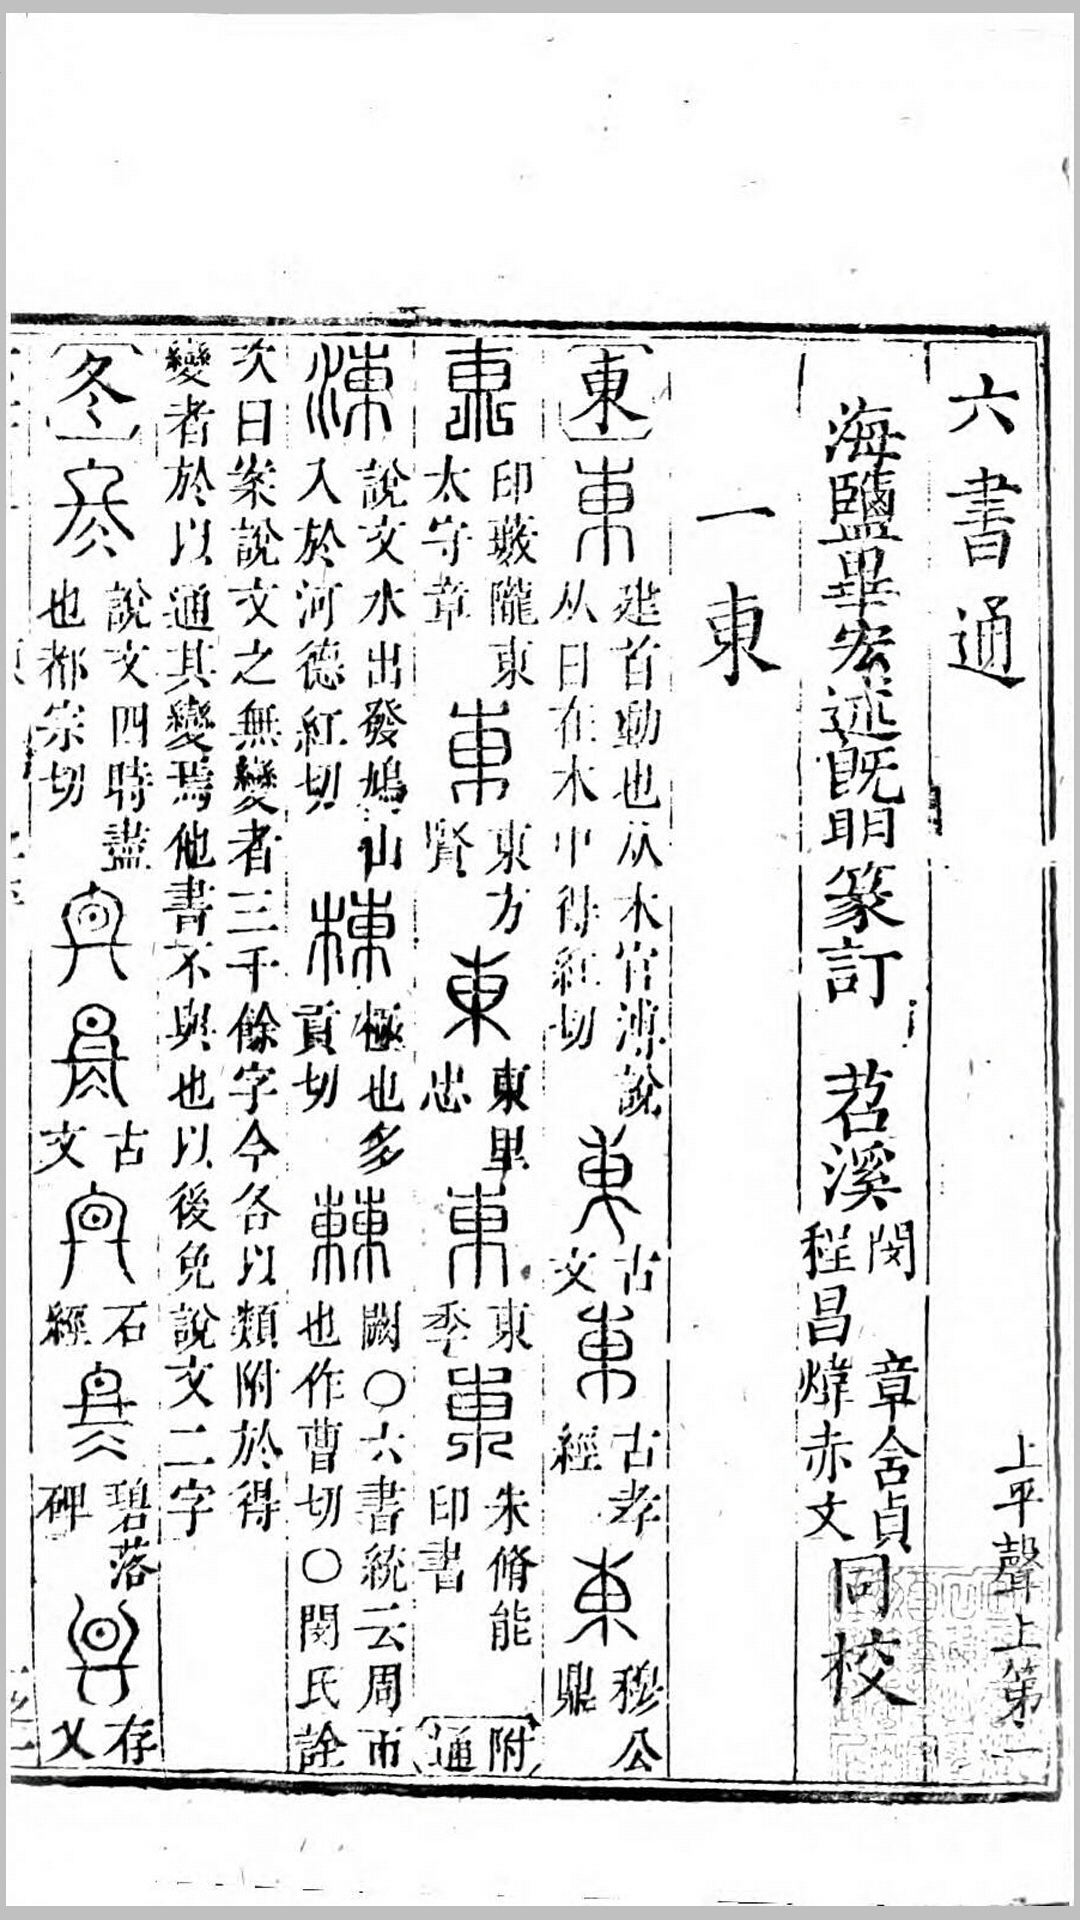 六書通 上平聲上第一
海鹽畢宏述既明篆訂 苕溪 閔章含貞 程昌煒赤文 同校
一東
東 東 建首動也从木官溥說从日在木中得紅切 東 古文 東 古孝經 東 穆公鼎
東 印藪隴東太守章 東 東方賢 東 東里忠 東 東季 東 朱脩能印書 附通
涷 說文水出發鳩山入於河德紅切 棟 極也多貢切 𣍘 闕〇六書統云周帀也作曹切〇閔氏詮
次曰案說文之無變者三千餘字今各以類附於得
變者於以通其變焉他書不與也以後免說文二字
冬 冬 說文四時盡也都宗切 古文 石經 碧落碑 存乂